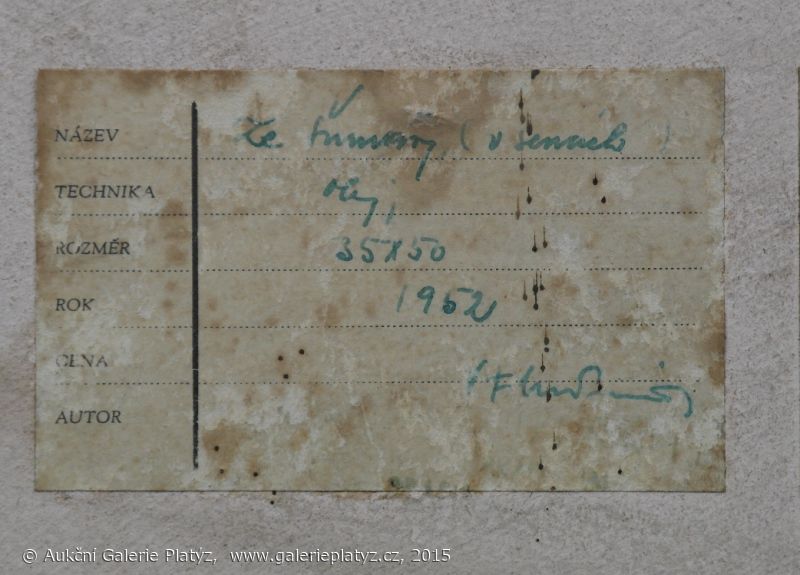 NÁZEV Ze Šumavy (v senách)
TECHNIKA olej
ROZMĚR 35x50
ROK 1952
CENA
AUTOR
© Aukční Galerie Platýz, www.galerieplatyz.cz, 2015